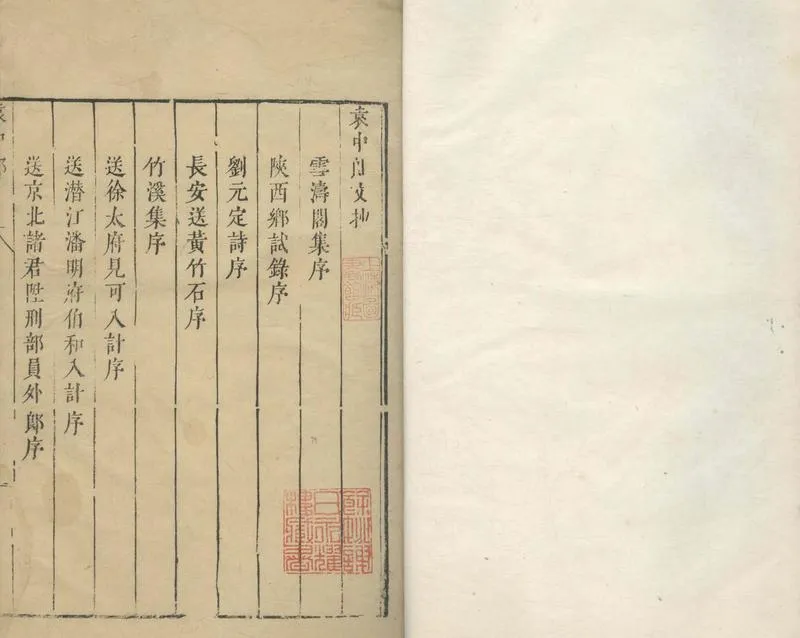 袁中郎文抄
雪濤閣集序
陝西鄉試錄序
劉元定詩序
長安送黃竹石序
竹溪集序
送徐太府見可入計序
送潛江潘明府伯和入計序
送京兆諸君陞刑部員外郎序
袁中郎